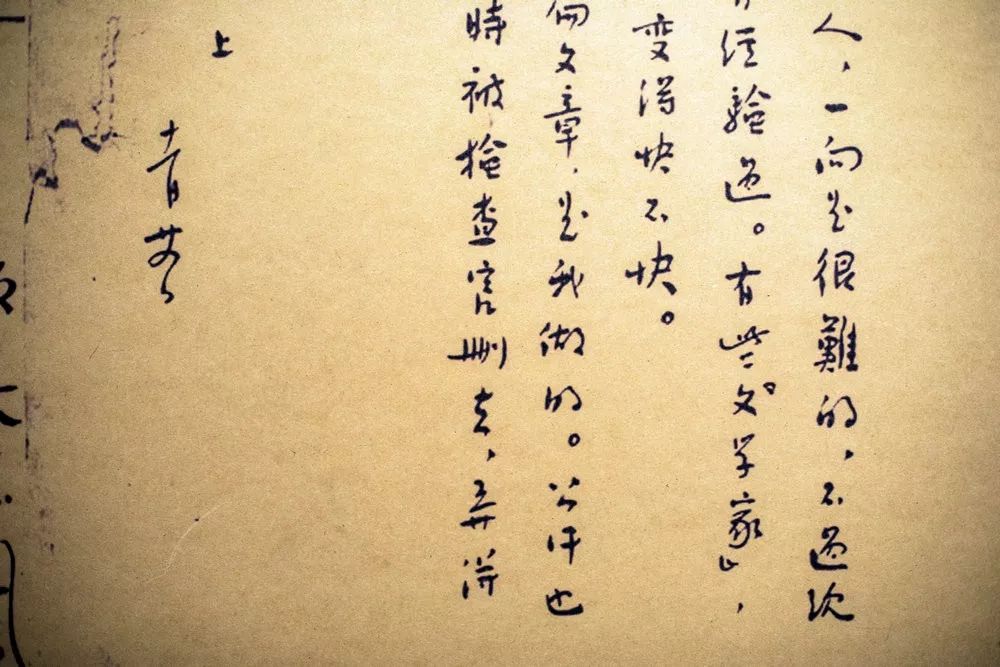 人、一向是很難的,不過
經驗過。有些“文學家”,
变得快不快。
文章,是我做的。公汗也
時被檢查官刪去,弄得
上